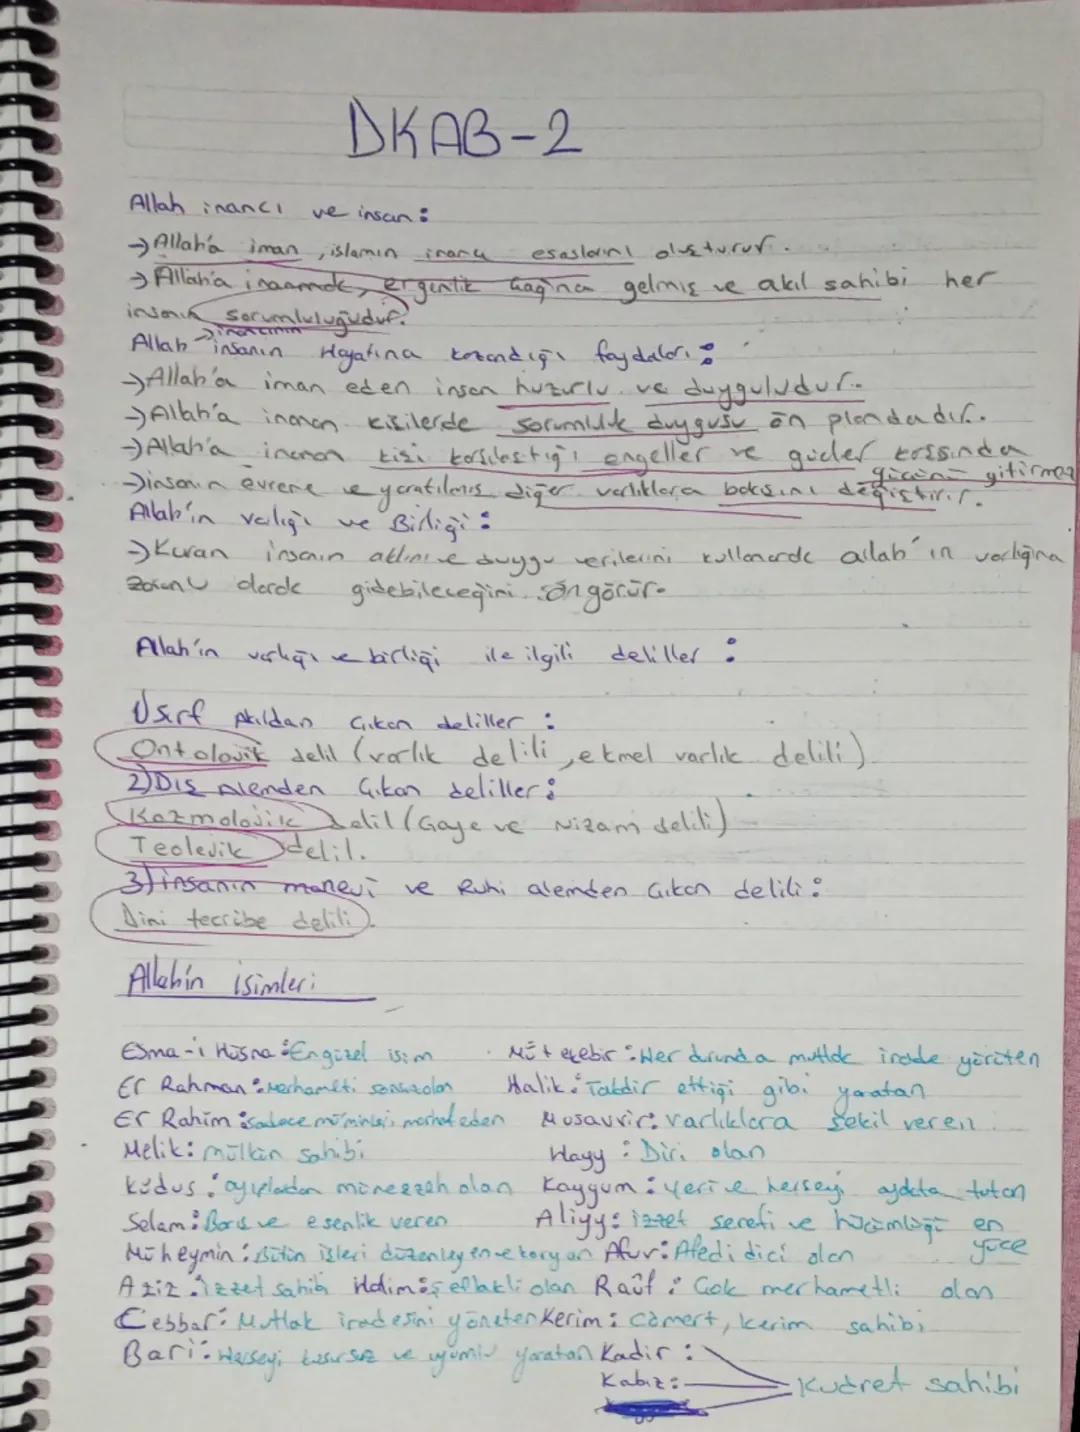 DKAB-2
Allah inancı ve insan:
→Allah'a iman, islamın inanç esaslarını oluşturur.
→Allah'a inanmak, ergenlik çağına gelmiş ve akıl sahibi her
insanın sorumluluğudur.
→inancının
Allah insanın Hayatına kazandığı faydaları:
→Allah'a iman eden insan huzurlu ve duyguludur.
→Allah'a inanan kişilerde sorumluluk duygusu ön plandadır.
→Allah'a inanan kişi karşılaştığı engeller ve güçler karşısında
gücünü yitirmez
→insanın evrene ve yaratılmış diğer varlıklara bakışını değiştirir.
Allah'ın varlığı ve Birliği:
→Kuran insanın aklını ve duygu verilerini kullanarak allah'ın varlığına
zorunlu olarak gidebileceğini öngörür.
Allah'ın varlığı ve birliği ile ilgili deliller:
1)sırf Akıldan Çıkan deliller:
Ontolojik delil (varlık delili, ekmel varlık delili)
2)Dış Alemden Çıkan deliller:
Kozmolojik delil (Gaye ve Nizam delili)
Teolejik delil.
3)insanın manevi ve Ruhi alemden Çıkan delili:
Dini tecrübe delili.
Allahın isimleri
Esma-i Hüsna: En güzel isim
Er Rahman: Merhameti sonsuz olan
Er Rahim: sadece mü'minleri merhat eden
Melik: mülkün sahibi
Kudus: ayıplardan münezzeh olan
Selam: Barış ve esenlik veren
Müheymin: Bütün işleri düzenleyen ve koruyan
Aziz: izzet sahibi
Halim: şeflaklı olan
Cebbar: Mutlak iradesini yöneten
Bari: Herşeyi kusursuz ve uyumlu yaratan
Mütekebir: Her durunda mutlak irade yürüten
Halik: Takdir ettiği gibi yaratan
Musavvir: varlıklara şekil veren
Hayy: Diri olan
Kayyum: yeri ve herşeyi ayakta tutan
Aliyy: izzet şerefi ve hükümlüğü en
yüce
Afuv: Afedidici olan
Raûf: Çok merhametli olan
Kerim: cömert, kerim sahibi
Kadir:
Kabız:
Kudret sahibi